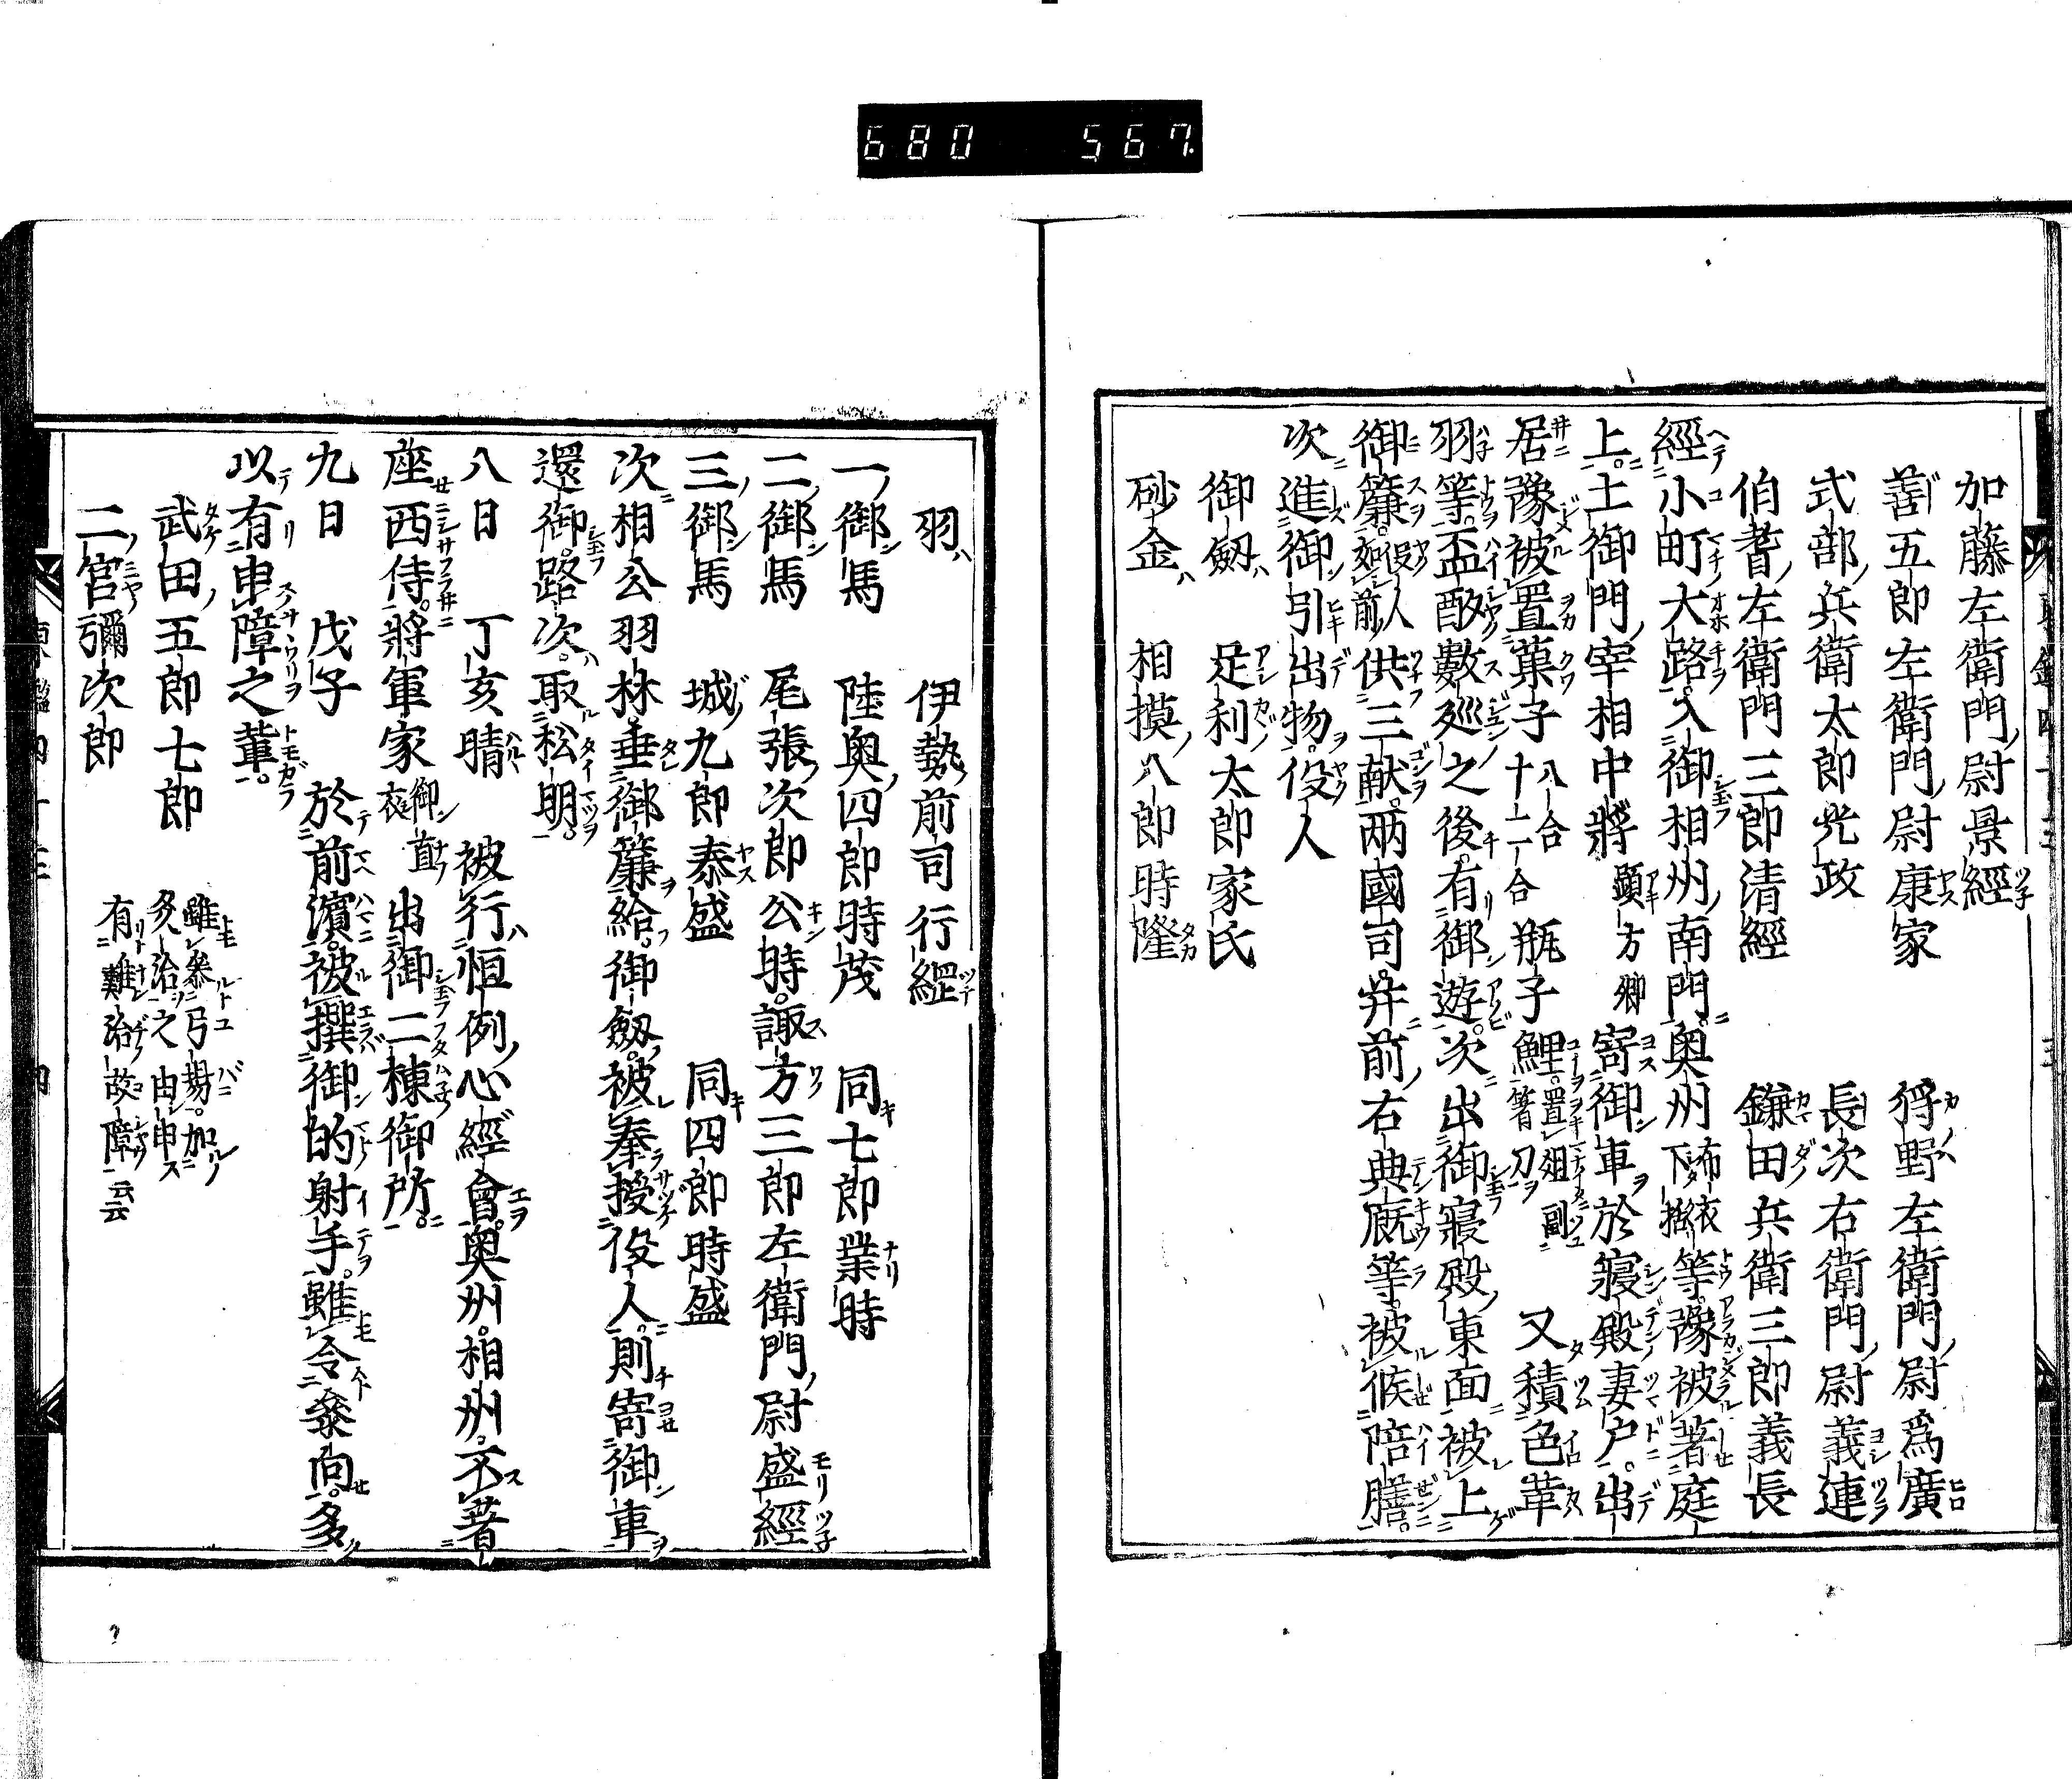 680 567
加藤左衛門尉景經 狩野左衛門尉爲廣
善五郎左衛門尉康家 長次右衛門尉義連
式部兵衛太郎光政 鎌田兵衛三郎義長
伯耆左衛門三郎清經
經小町大路入御相州南門奥州布衣下括等豫被著庭
上土御門宰相中將顕方卿寄御車於寢殿妻戸出
居豫被置菓子八合十二合瓶子鯉置俎副箸刀又積色革
羽等盃酌數廵之後有御遊次出御寢殿東面被上
御簾役人如前供三献兩國司并前右典厩等被候陪膳
次進御引出物役人
御劔 足利太郎家氏
砂金 相摸八郎時隆
羽 伊勢前司行經
一御馬 陸奥四郎時茂 同七郎業時
二御馬 尾張次郎公時 諏方三郎左衛門尉盛經
三御馬 城九郎泰盛 同四郎時盛
次相公羽林垂御簾給御劔被奉授役人則寄御車
還御路次取松明
八日 丁亥晴 被行恒例心經會奥州相州不著
座西侍將軍家御直衣出御二棟御所
九日 戊子 於前濱被撰御的射手雖令參向多
以有申障之輩
武田五郎七郎 雖參弓場加灸治之由申
二宮彌次郎 有難治故障云云